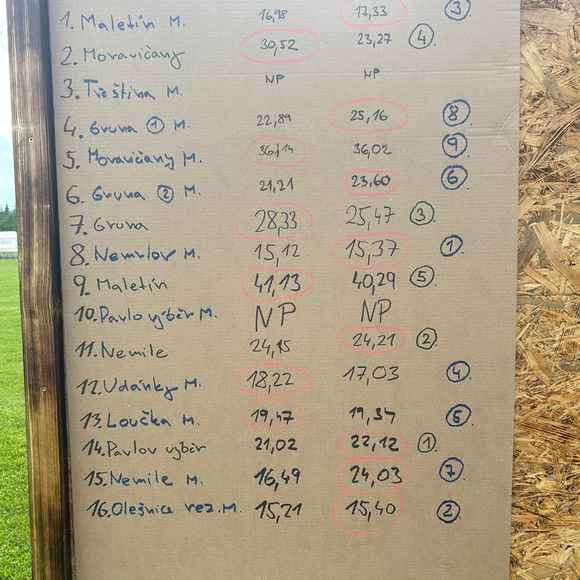 1. Maletín M. 16,98 17,33 3.
2. Moravičany 30,52 23,27 4.
3. Třeština M. NP NP
4. Gruna 1 M. 22,89 25,16 8.
5. Moravičany M. 36,02 9.
6. Gruna 2 M. 21,21 23,60 6.
7. Gruna 28,33 25,47 3.
8. Nemilov M. 15,12 15,37 1.
9. Maletín 41,13 40,29 5.
10. Pavlov výběr M. NP NP
11. Nemile 24,15 24,21 2.
12. Udánky M. 18,22 17,03 4.
13. Loučka M. 19,47 19,34
14. Pavlov výběr 21,02 22,12 1.
15. Nemile M. 16,49 24,03 7.
16. Olešnice rez. M. 15,21 15,40 2.